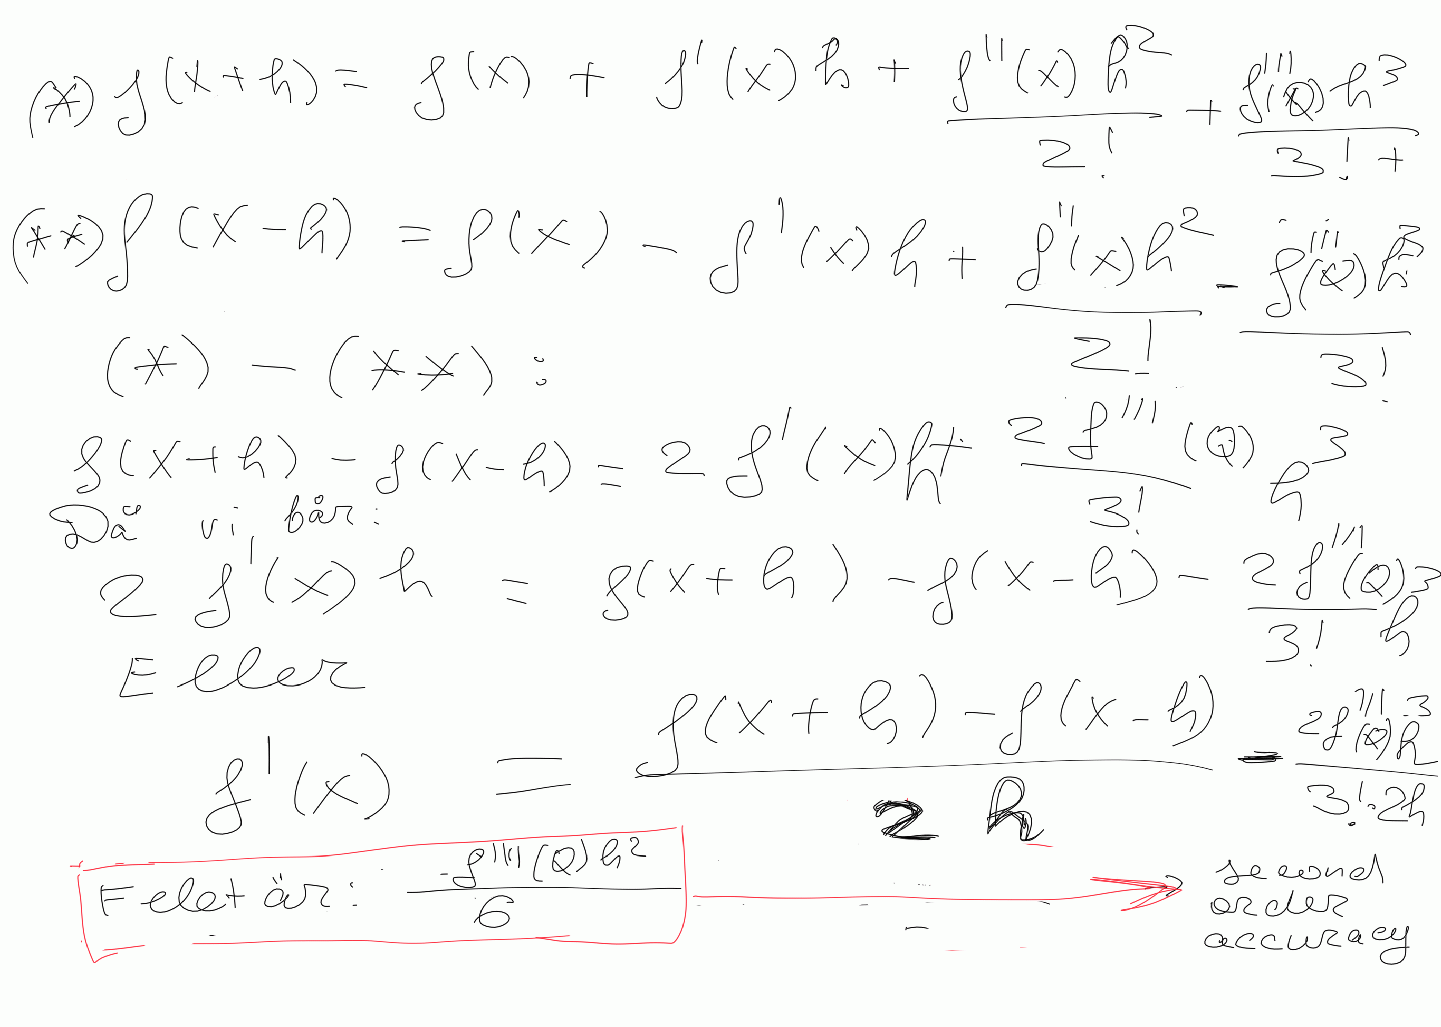 (*) f(x+h) = f(x) + f'(x)h + f''(x)h²/2! + f'''(Q)h³/3! +
(**) f(x-h) = f(x) - f'(x)h + f''(x)h²/2! - f'''(Q)h³/3!
(*) - (**) :
f(x+h) - f(x-h) = 2f'(x)h + 2f'''(Q)/3! h³
Då vi får:
2f'(x)h = f(x+h) - f(x-h) - 2f'''(Q)/3! h³
Eller
f'(x) = f(x+h) - f(x-h)/2h - 2f'''(Q)h³/3!·2h
Felet är: -f'''(Q)h²/6
second
order
accuracy